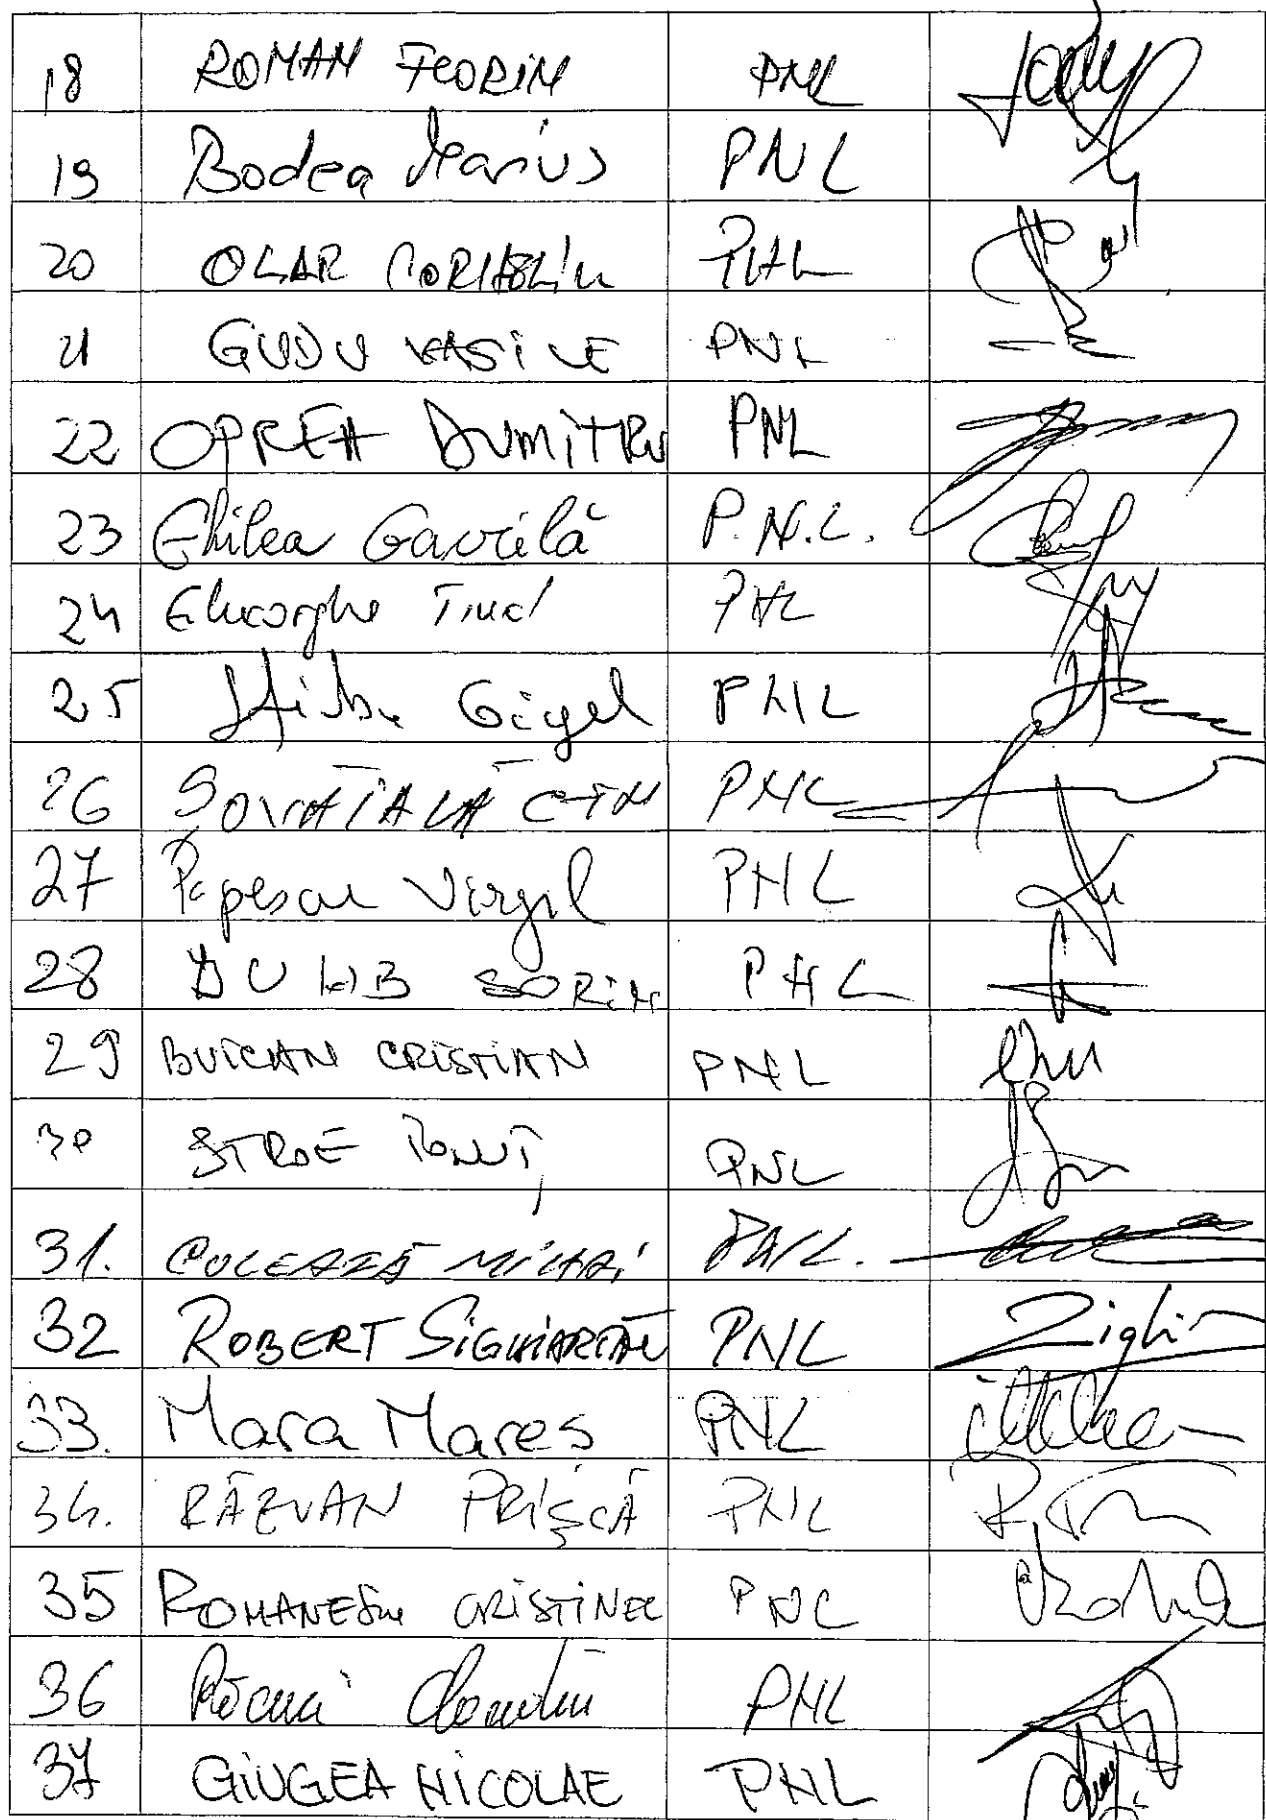 18 ROMAN FLORIN PNL
19 Bodea Marius PNL
20 OLAR CORNELIU PNL
21 GUDU VASILE PNL
22 OPREA DUMITRU PNL
23 Ghilea Gavrilă P.N.L.
24 Gheorghe Tinel PNL
25 Știrbu Gigel PNL
26 ȘOVĂIALĂ C-TIN PNL
27 Popescu Virgil PNL
28 SORIN PNL
29 BUICAN CRISTIAN PNL
30 STROE IONUȚ PNL
31. CULEAFĂ MIHAI PNL.
32 ROBERT SIGHIARTĂU PNL
33. Mara Mares PNL
34. RĂZVAN PRIȘCĂ PNL
35 ROMANESCU CRISTINEL PNL
36 Răcuci Claudiu PNL
37 GIUGEA NICOLAE PNL